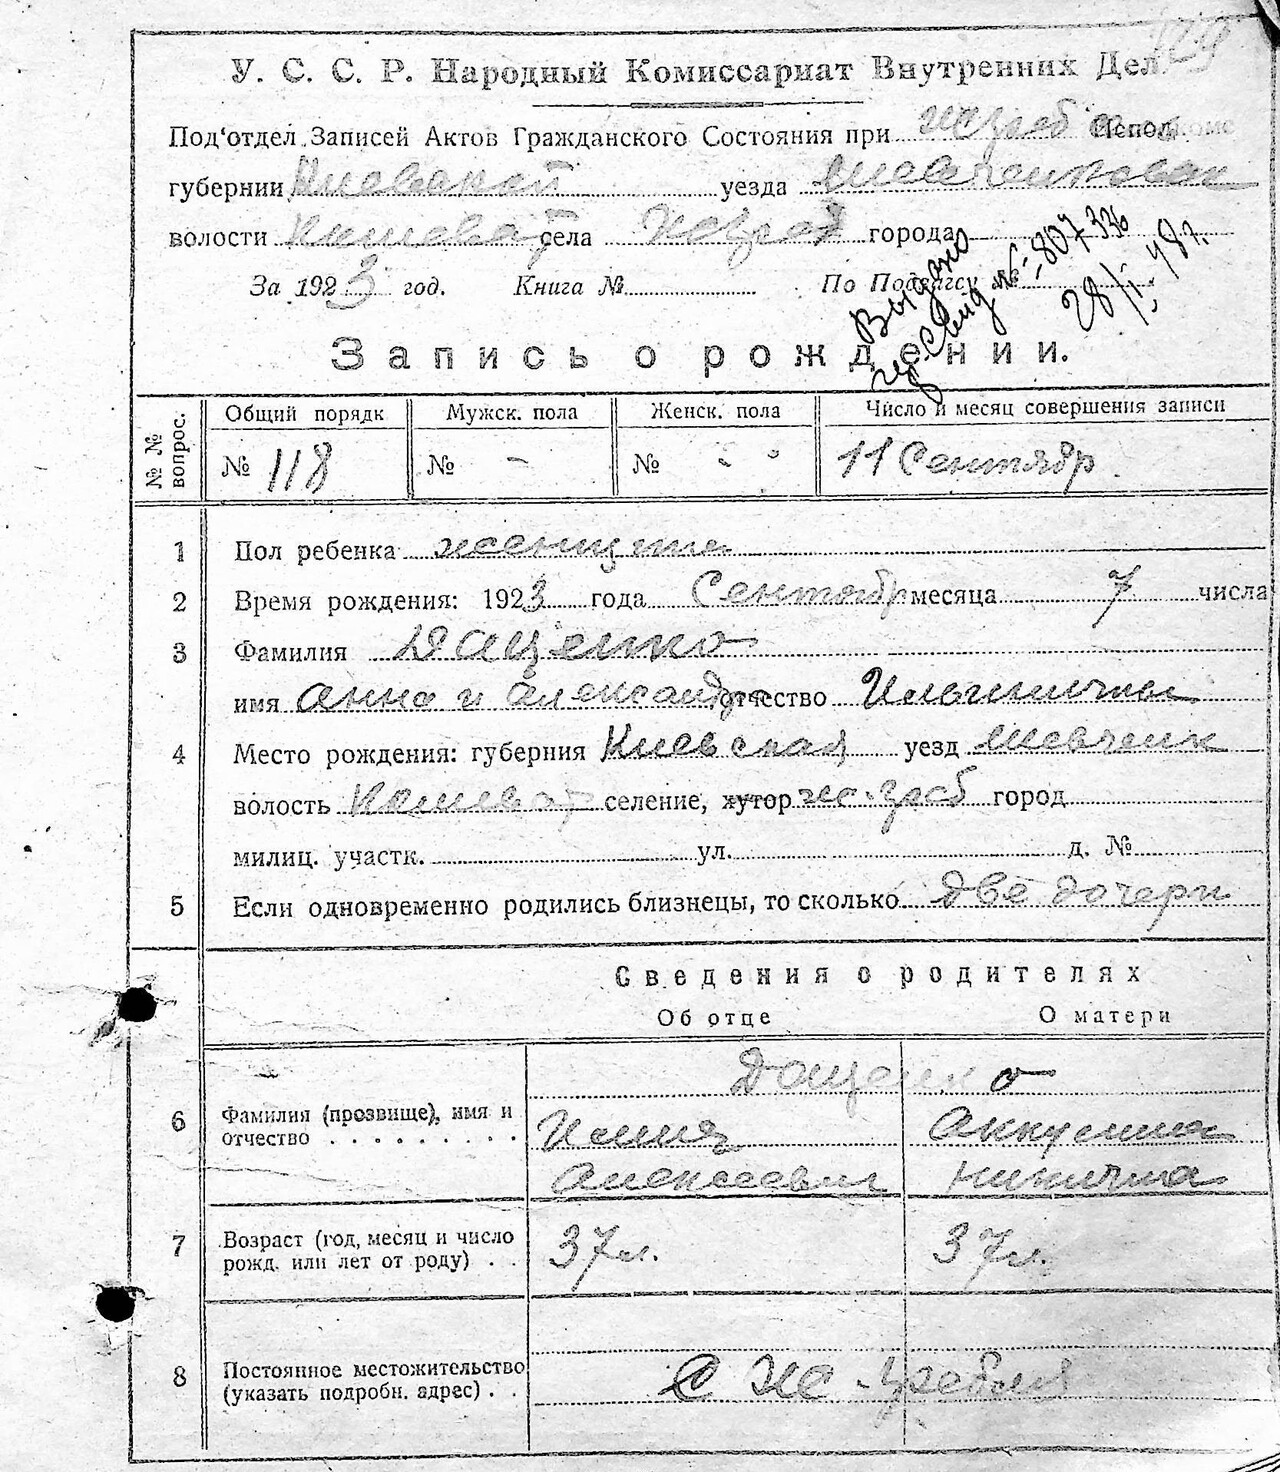 У. С. С. Р. Народный Комиссариат Внутренних Дел.
Под'отдел Записей Актов Гражданского Состояния при Исполкоме
губернии Киевской уезда Шевченковск
волости села города
За 1923 год. Книга № По Подзагсу №
Выдано
свид № 807336
28/I 48 г.
Запись о рождении.
№ № вопрос.
Общий порядк Мужск. пола Женск. пола Число и месяц совершения записи
№ 118 № - № - 11 Сентябр
1 Пол ребенка женщина
2 Время рождения: 1923 года Сентябр месяца 7 числа
3 Фамилия Даценко
имя Анна и Александра отчество Ильинични
4 Место рождения: губерния Киевская уезд Шевченк
волость селение, хутор город
милиц. участк. ул. д. №
5 Если одновременно родились близнецы, то сколько две дочери
Сведения о родителях
Об отце О матери
Даценко
6 Фамилия (прозвище), имя и
отчество . . . . . . . . . Илия Аккулина
Алексеевич Никитична
7 Возраст (год, месяц и число
рожд. или лет от роду) . . 37 л. 37 л.
8 Постоянное местожительство
(указать подробн. адрес) . .